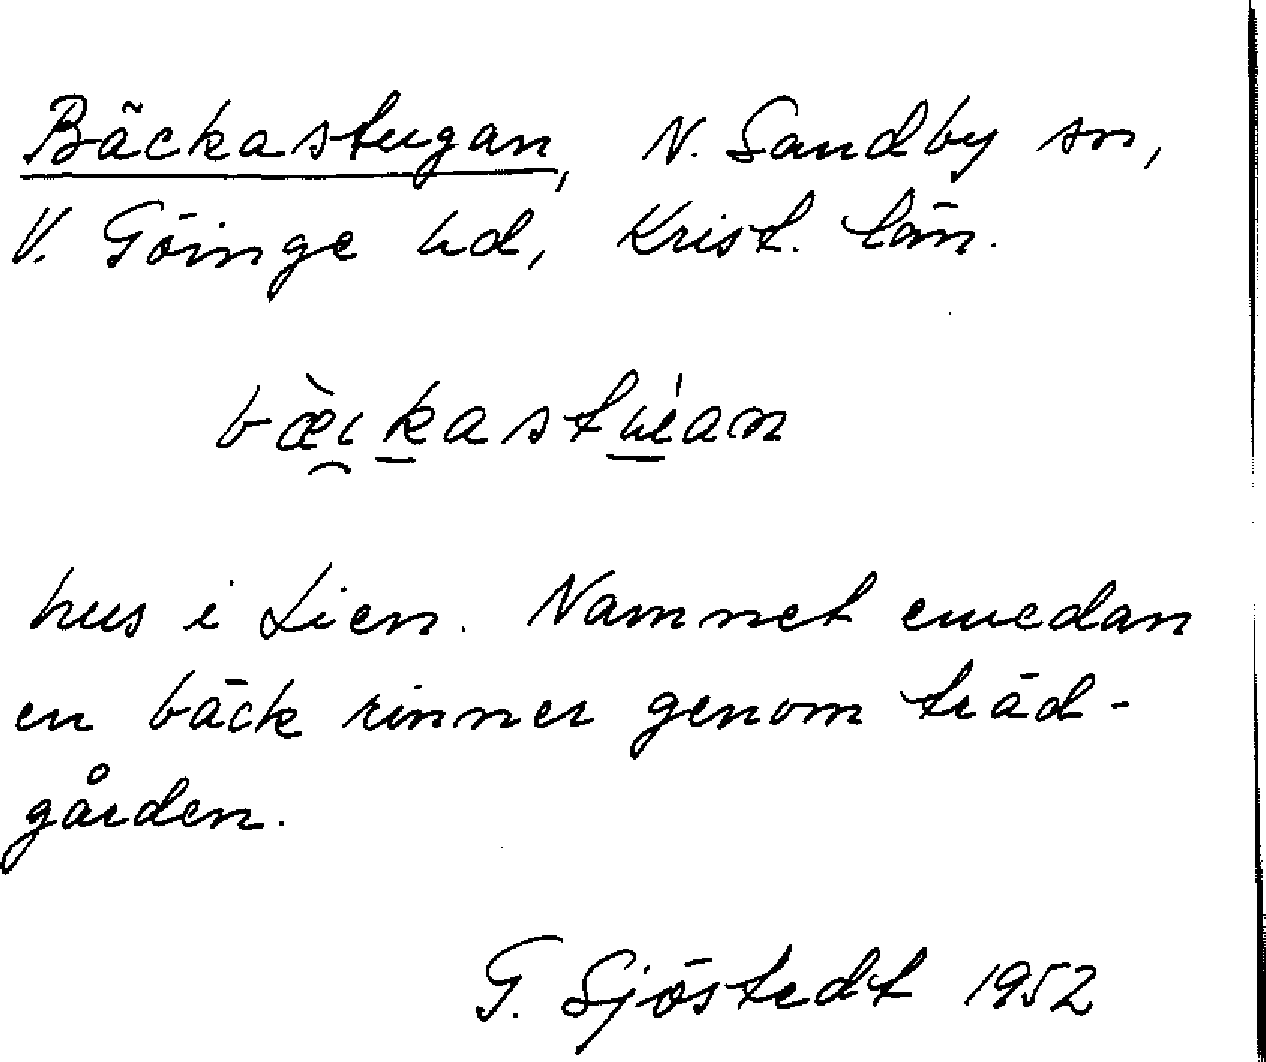 Bäckastugan, N. Sandby sn,
V. Göinge hd, Krist. län.
hus i Lien. Namnet emedan
en bäck rinner genom träd-
gården.
G. Sjöstedt 1952